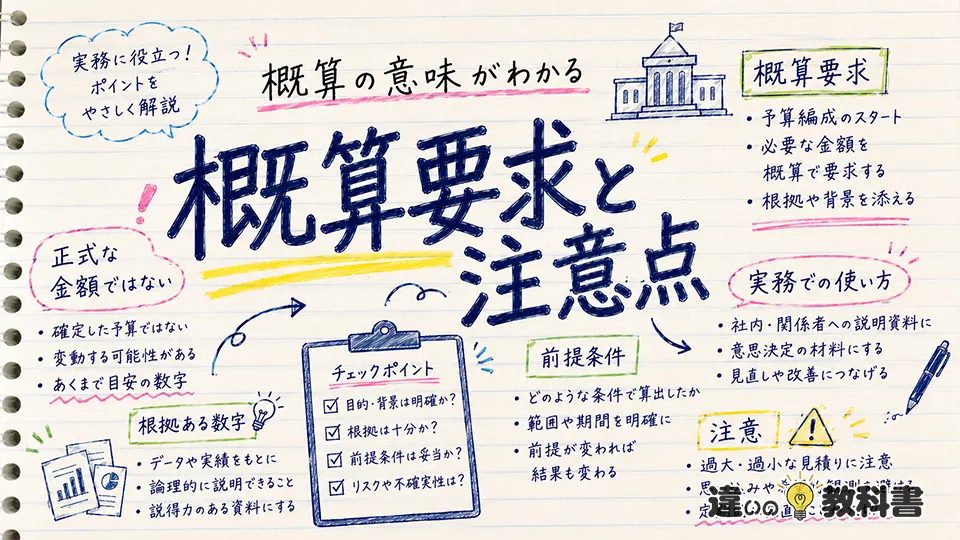 実務に役立つ!
ポイントを
やさしく解説
概算の意味がわかる
概算要求と
注意点
概算要求
・予算編成のスタート
・必要な金額を
概算で要求する
・根拠や背景を添える
正式な
金額ではない
・確定した予算ではない
・変動する可能性がある
・あくまで目安の数字
根拠ある数字
・データや実績をもとに
・論理的に説明できること
・説得力のある資料にする
チェックポイント
目的・背景は明確か?
根拠は十分か?
前提条件は妥当か?
リスクや不確実性は?
前提条件
・どのような条件で算出したか
・範囲や期間を明確に
・前提が変われば
結果も変わる
実務での使い方
・社内・関係者への説明資料に
・意思決定の材料にする
・見直しや改善につなげる
注意
・過大・過小な見積りに注意
違いの教科書